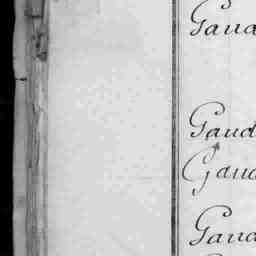 Gaud
Gaud
Gaud
Gaud